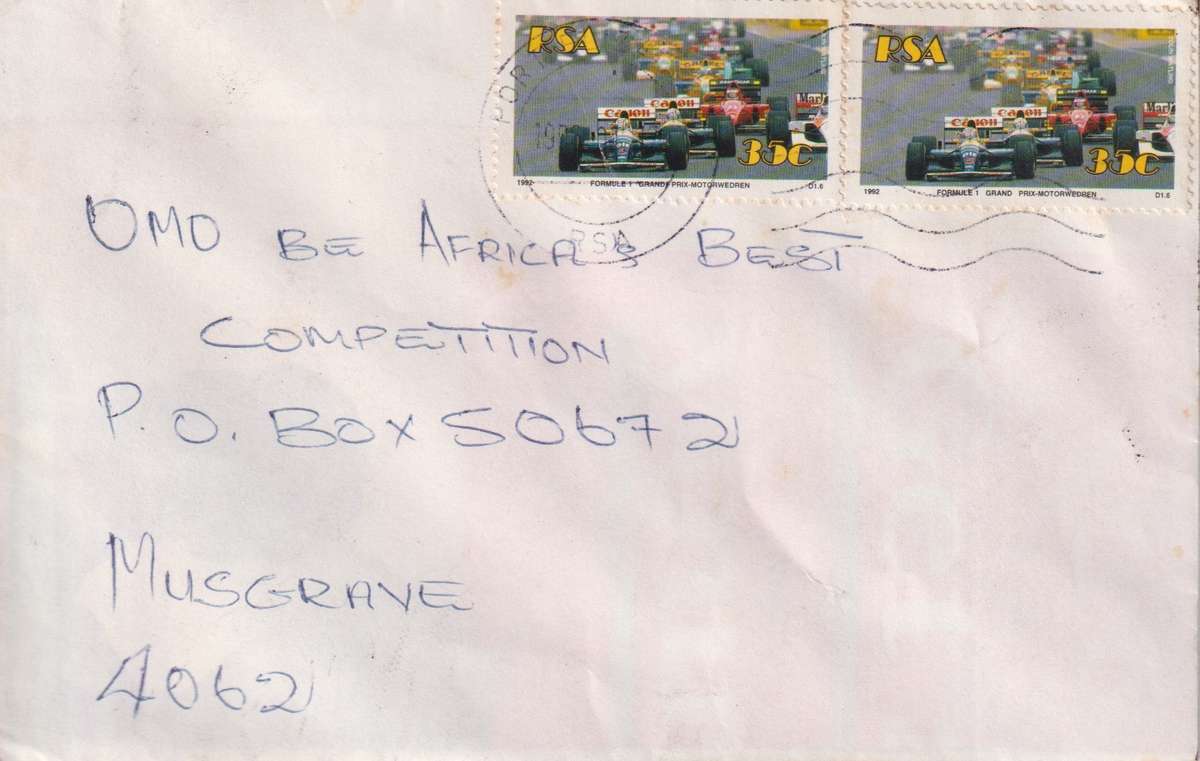 RSA
Canon
Canon
35c
1992 FORMULE 1 GRAND PRIX-MOTORWEDREN D1.6
RSA
Canon
Canon
35c
1992 FORMULE 1 GRAND PRIX-MOTORWEDREN D1.6
RSA
OMO BE AFRICA'S BEST
COMPETITION
P.O. BOX 50672
MUSGRAVE
4062